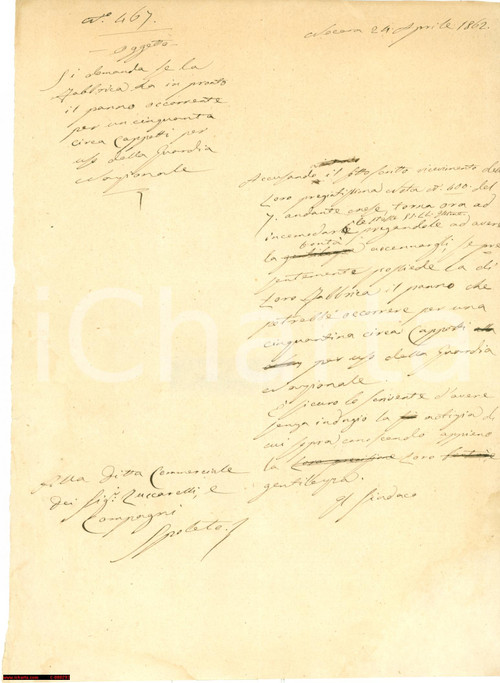 N.° 467.
Oggetto
Si domanda se la
Fabbrica ha in pronto
il panno occorrente
per un cinquanta
circa Cappotti per
uso della Guardia
Nazionale
Nocera 24 Aprile 1862.
Accusando il sottoscritto ricevimento della
Loro pregiatissima Nota N.° 400. del
7. andante mese torna ora ad
incomodare le stesse SS. LL.
pregandole ad avere
la bontà accennargli, se pre
sentemente possiede la di
Loro Fabbrica il panno che
potrebbe occorrere per una
cinquantina circa Cappotti
per uso della Guardia
Nazionale.
È sicuro lo scrivente d'avere
senza indugio la notizia di
cui sopra conoscendo appieno
la Loro
gentilezza.
Il Sindaco
Alla Ditta Commerciale
dei Sig.ri Zuccarelli e
Compagni
Spoleto
iCharta